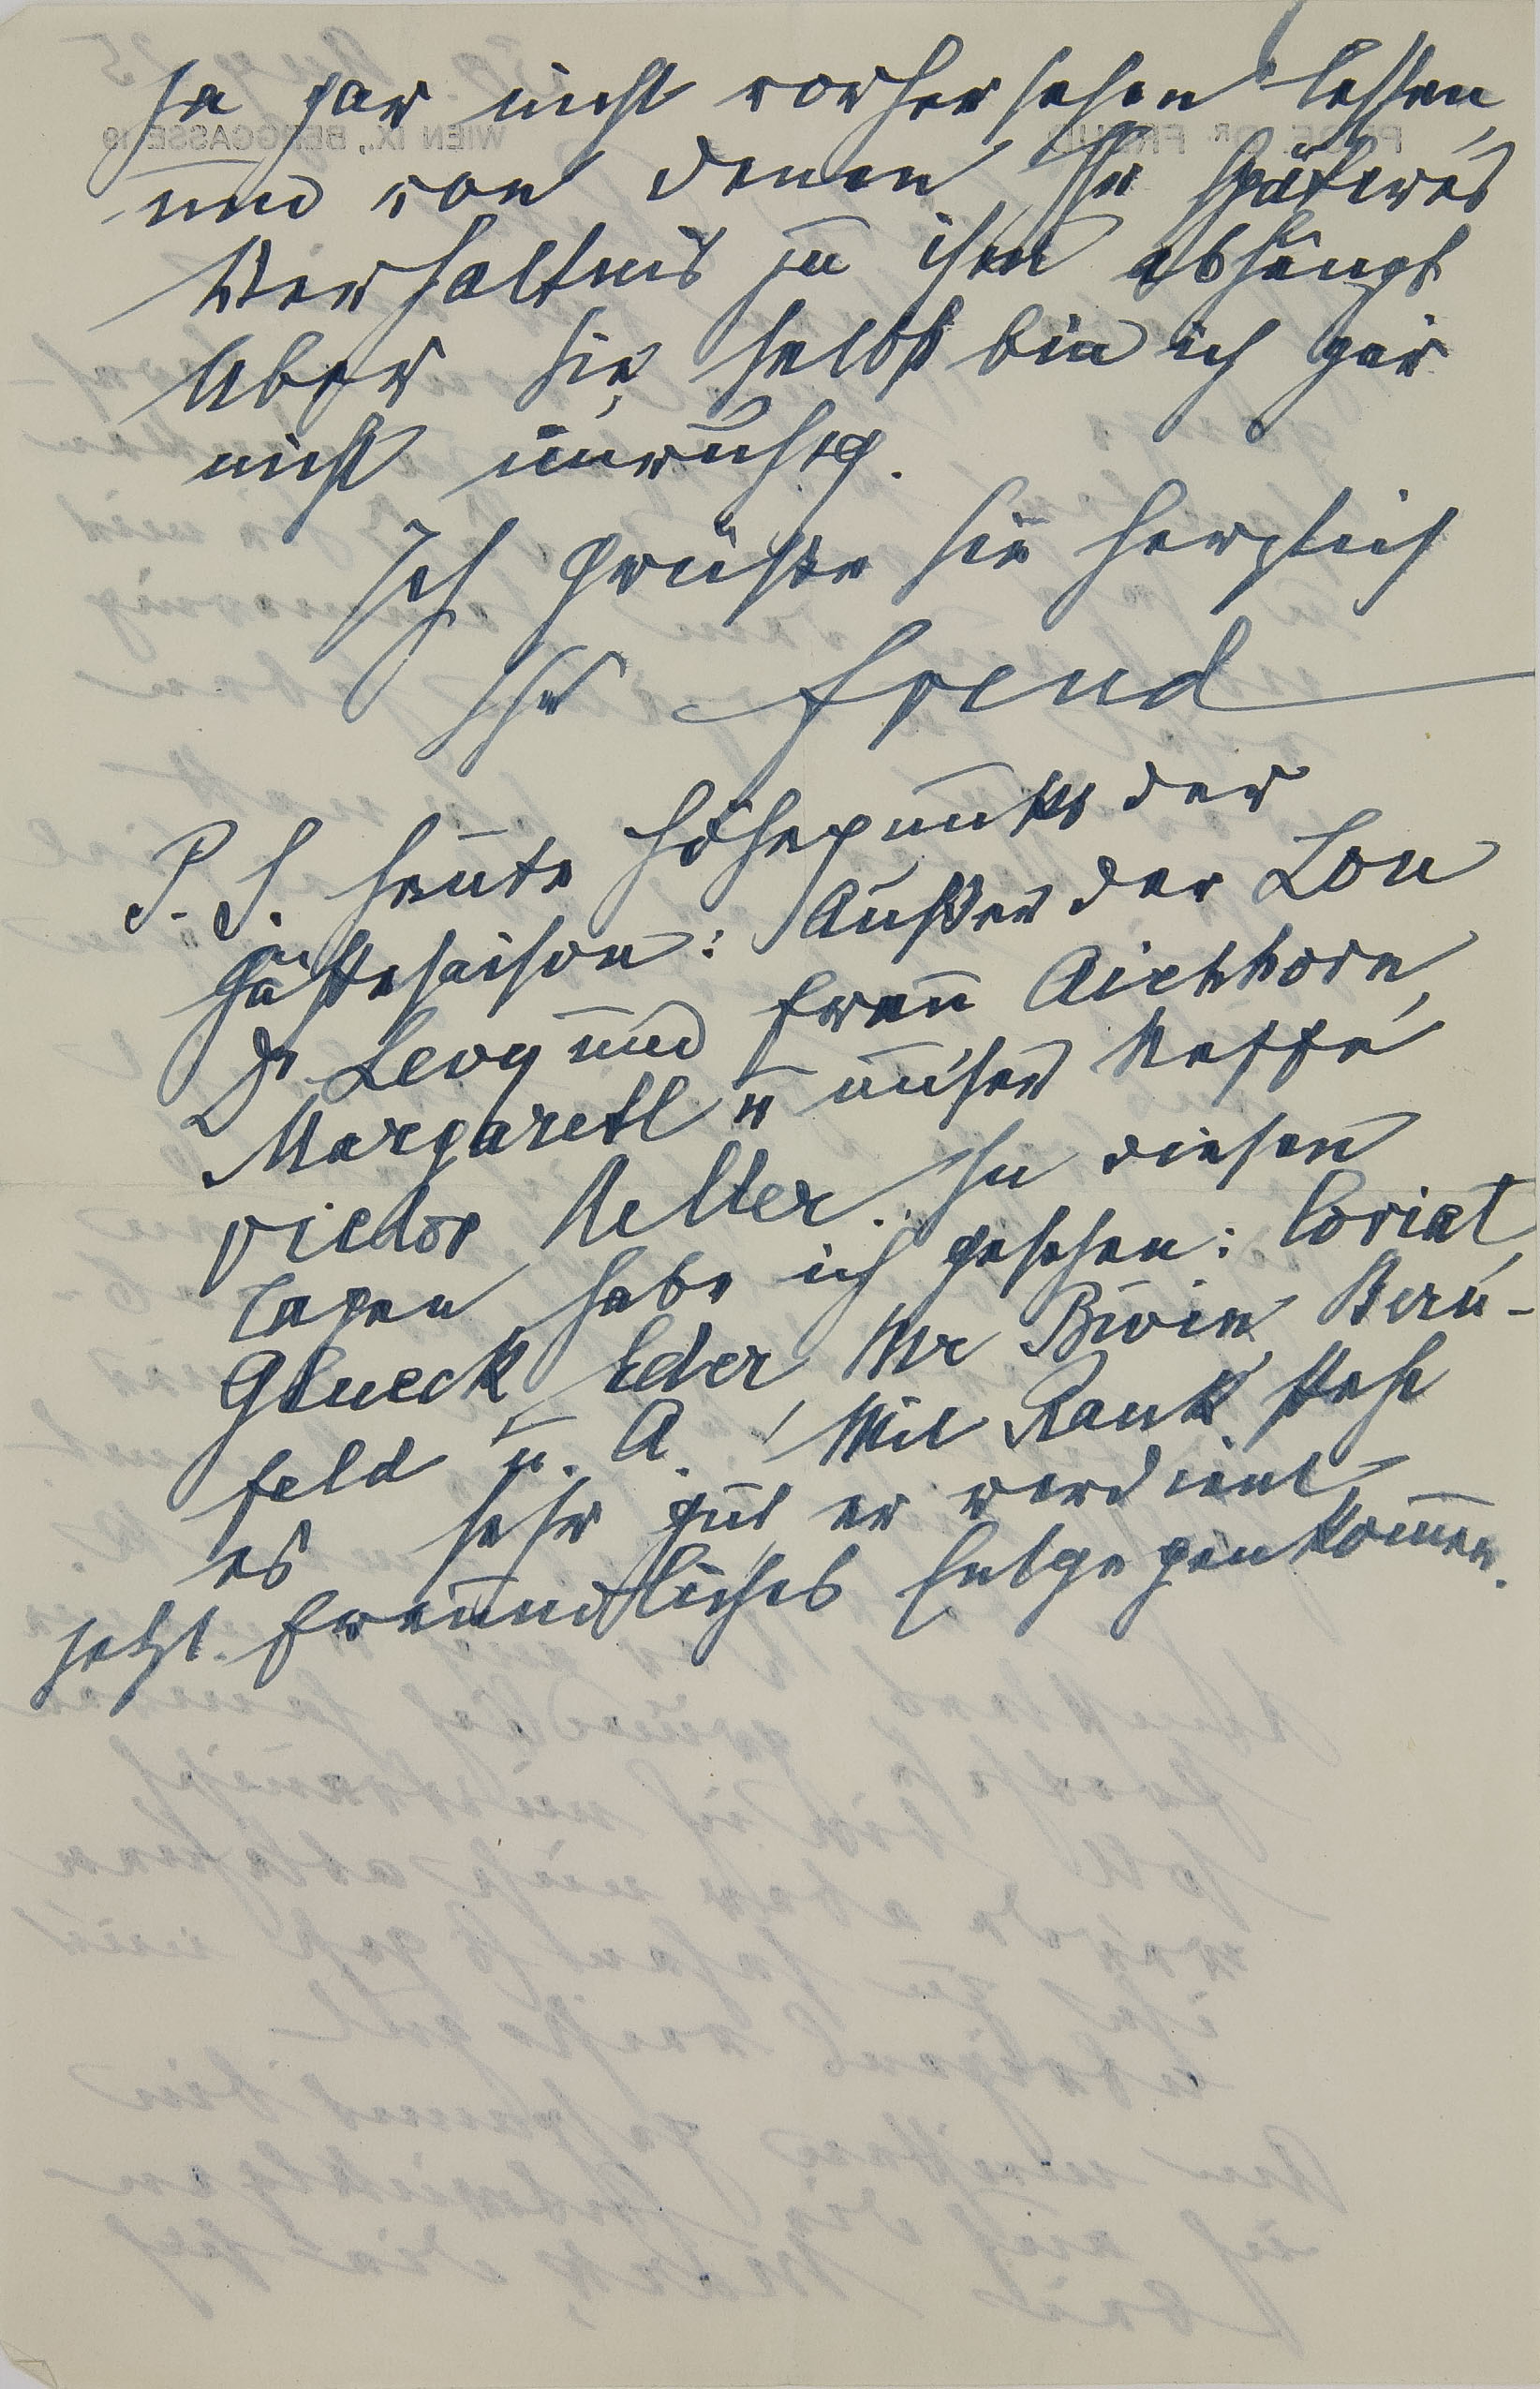 ja gar nicht vorhersehen lassen,
und von denen Ihr späteres
Verhältnis zu ihm abhängt
Über Sie selbst bin ich gar
nicht unruhig.
Ich grüße Sie herzlich
Ihr Freud
P.S. Heute Höhepunkt der
Gästesaison: Außer der Lou
Dr Levy und Frau Aichhorn,
Margaretl u unser Neffe
Victor Heller. In diesen
Tagen habe ich gesehen: Coriat,
Glueck Eder Mr Bivin Bern-
feld u. A. Mit Rank steht
es sehr gut er verdient
jetzt freundliches Entgegenkommen.
PROF. DR FREUD WIEN IX., BERGGASSE 19